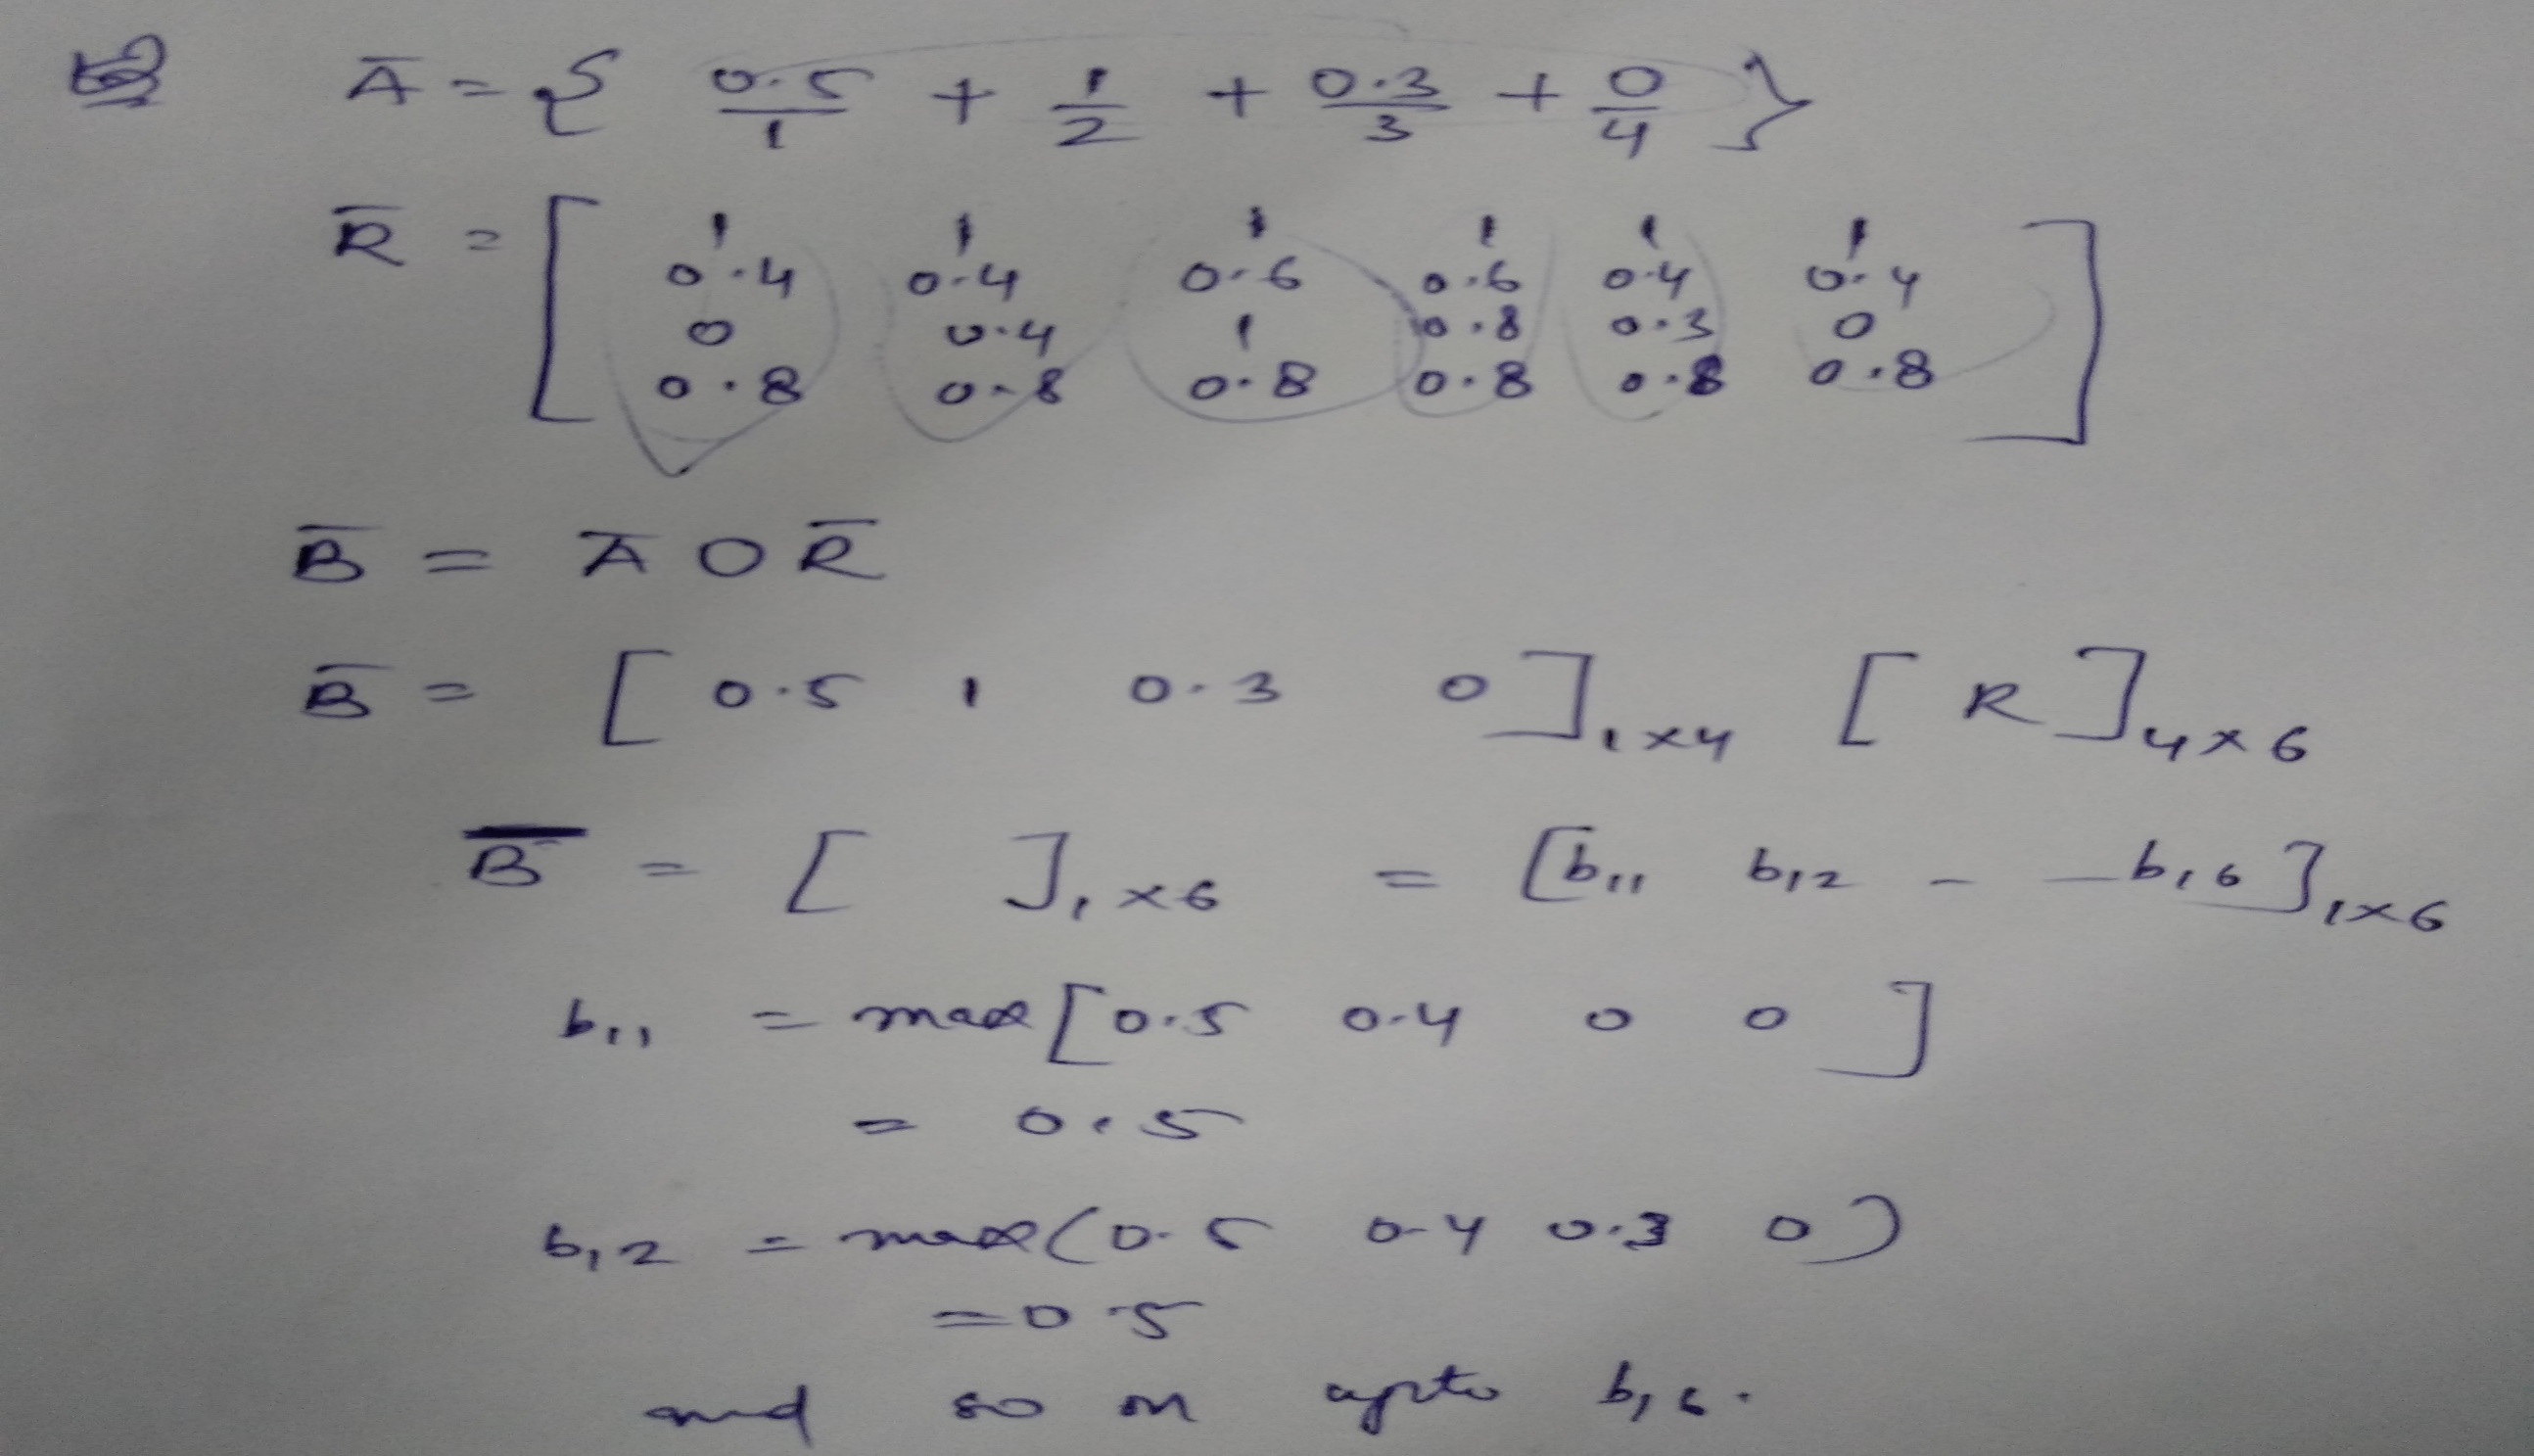 Ā = { 0.5/1 + 1/2 + 0.3/3 + 0/4 }
R̄ = [ 1 1 1 1 1 1
0.4 0.4 0.6 0.6 0.4 0.4
0 0.4 1 0.8 0.3 0
0.8 0.8 0.8 0.8 0.8 0.8 ]
B̄ = Ā O R̄
B̄ = [ 0.5 1 0.3 0 ]1×4 [ R ]4×6
B̄ = [ ]1×6 = [b11 b12 - - b16]1×6
b11 = max [ 0.5 0.4 0 0 ]
= 0.5
b12 = max ( 0.5 0.4 0.3 0 )
= 0.5
and so on upto b16.